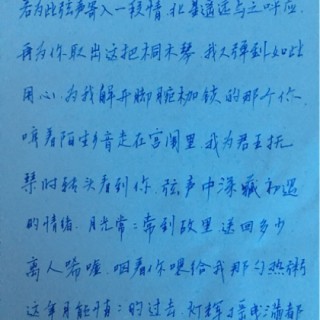 若为此弦声寄入一段情.北星遥远与之呼应.
再为你取出这把桐木琴.我又弹到如此
用心.为我解开脚腕枷锁的那个你
哼着陌生乡音走在宫闱里.我为君王抚
琴时转头看到你.弦声中深藏初遇
的情绪.月光常々常到故里送回多少
离人唏嘘.咽着你喂给我那勺热粥
这年月能悄々的过去.灯辉摇曳满都